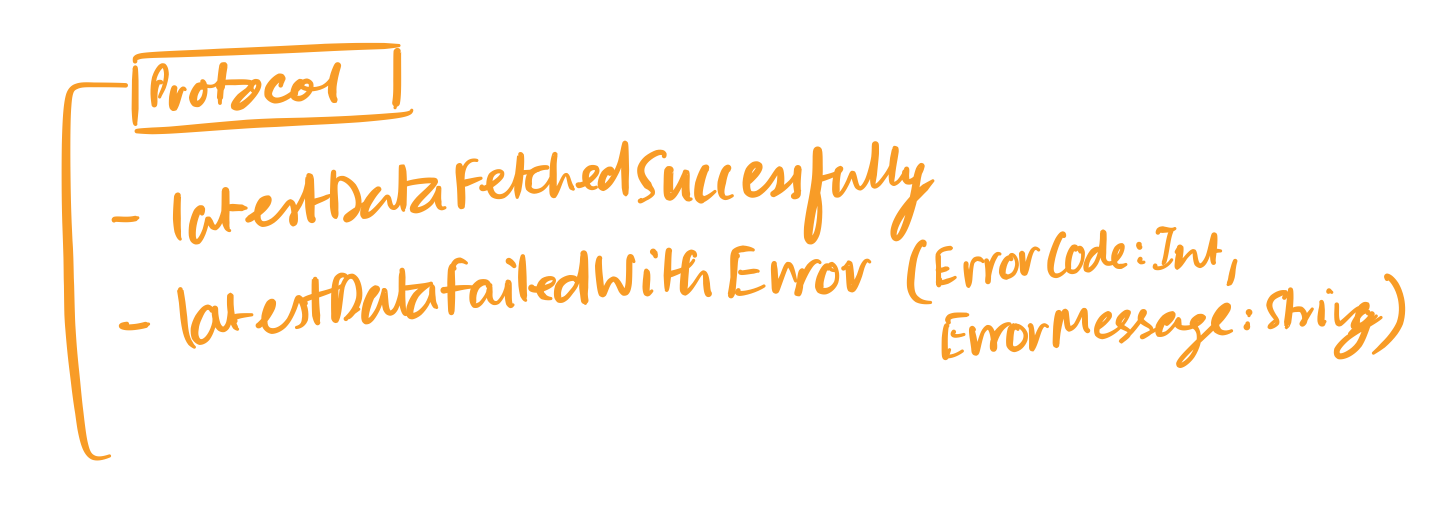 Protocol
- latestDataFetchedSuccessfully
- latestDataFailedWithError (ErrorCode:Int,
ErrorMessage:String)